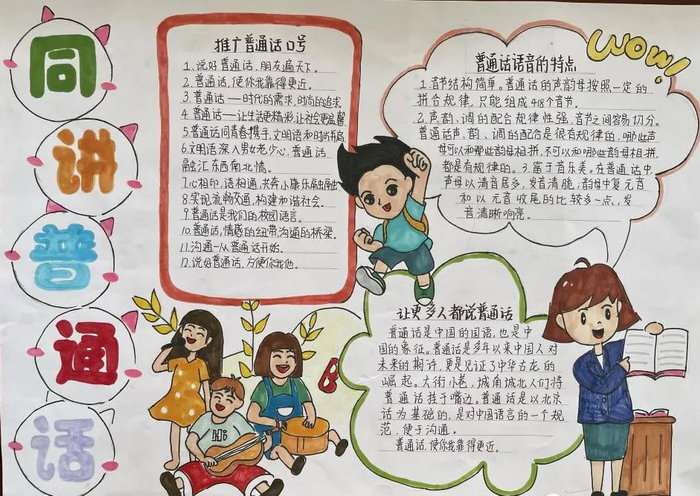 同
讲
普
通
话
推广普通话口号
1.说好普通话，朋友遍天下。
2.普通话，使你我靠得更近。
3.普通话——时代的需求，时尚的追求。
4.普通话——让生活更精彩，让社会更和谐
5.普通话同青春携手，文明语和时尚
6.文明语深入男女老少心，普通话
融汇东西南北情。
7.心相印，话相通，
8.实现流畅交通，构建和谐社会。
9.普通话是我们的校园语言。
10.普通话，情感的纽带沟通的桥梁。
11.沟通—从普通话开始。
12.说好普通话，方便你我他。
普通话语音的特点
1.音节结构简单。普通话的声韵母按照一定的
拼合规律，只能组成418个音节。
2.声、韵、调的配合规律性强，音节之间容易切分。
普通话声、韵、调的配合是很有规律的，哪些声
母可以和哪些韵母相拼，不可以和哪些韵母相拼
都是有规律的。3.富于音乐美。在普通话中
声母以清音居多，发音清脆，韵母中复元音
和以元音收尾的比较多一点，发
音清晰响亮。
WOW!
让更多人都说普通话
普通话是中国的国语，也是中
国的象征。普通话是多年以来中国人对
未来的期许，更是见证了中华古龙的
崛起。大街小巷，城南城北人们将
普通话挂于嘴边。普通话是以北京
话为基础的，是对中国语言的一个规
范，便于沟通。
普通话，使你我靠得更近。